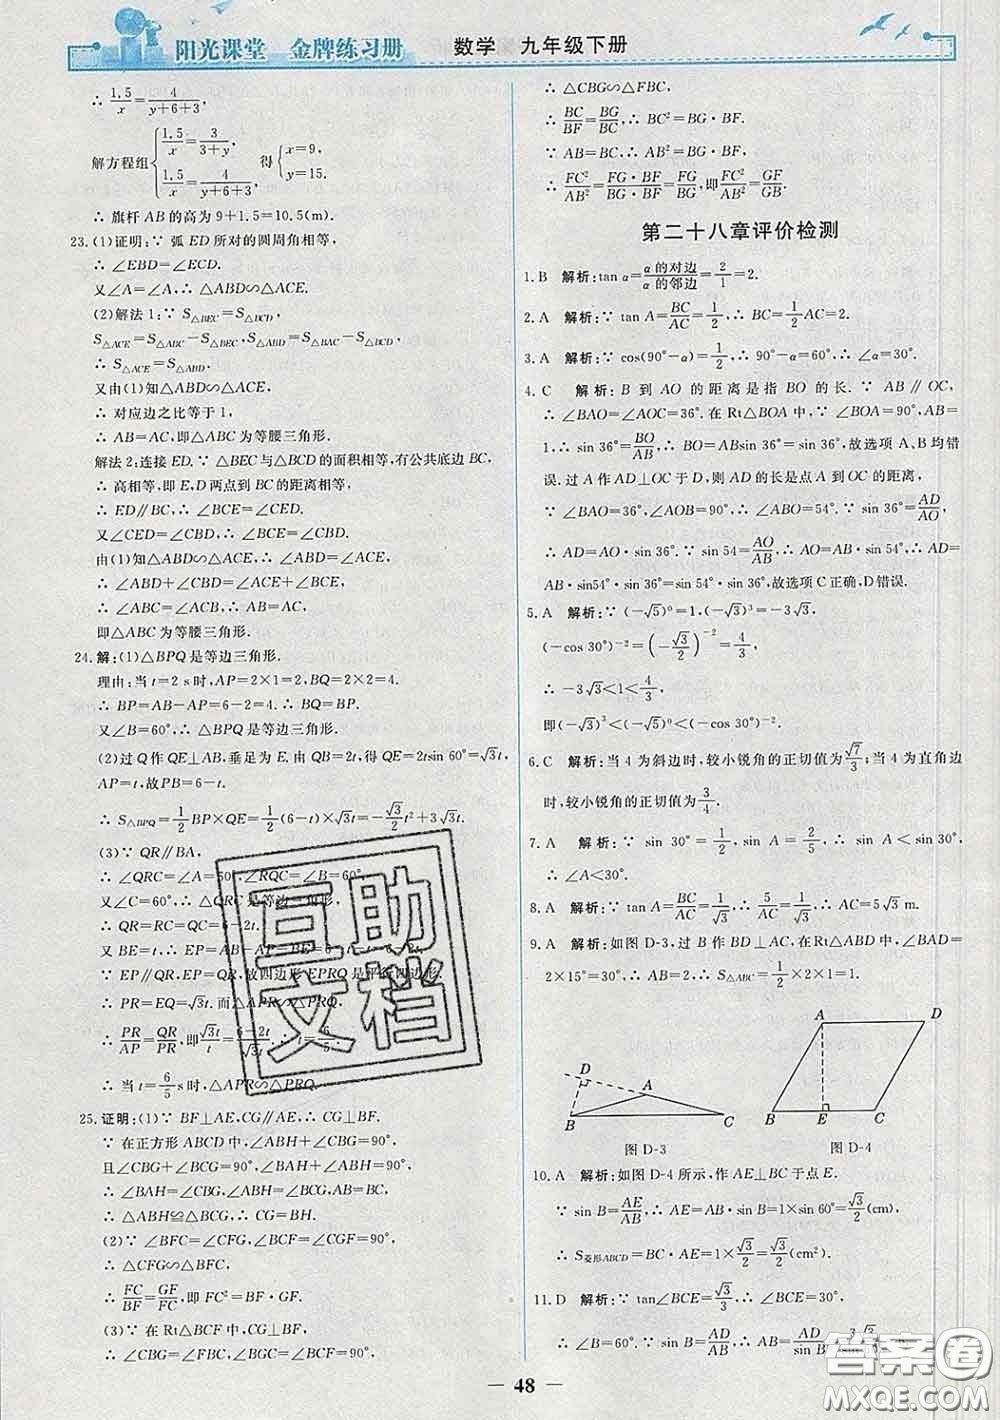 阳光课堂 金牌练习册 数学 九年级下册
∴ 1.5/x=4/(y+6+3),
解方程组{1.5/x=3/(3+y), 1.5/x=4/(y+6+3), 得{x=9, y=15.
∴ 旗杆 AB 的高为 9+1.5=10.5(m).
23.(1)证明:∵ 弧 ED 所对的圆周角相等,
∴ ∠EBD=∠ECD.
又∠A=∠A,∴ △ABD∽△ACE.
(2)解法 1:∵ S△BEC=S△BCD,
S△ACE=S△ABC-S△BEC,S△ABD=S△BAC-S△BCD,
∴ S△ACE=S△ABD.
又由(1)知△ABD∽△ACE,
∴ 对应边之比等于 1,
∴ AB=AC,即△ABC 为等腰三角形.
解法 2:连接 ED.∵ △BEC 与△BCD 的面积相等,有公共底边 BC,
∴ 高相等,即 E,D 两点到 BC 的距离相等,
∴ ED∥BC,∴ ∠BCE=∠CED.
又∠CED=∠CBD,∴ ∠BCE=∠CBD,
由(1)知△ABD∽△ACE,
∴ ∠ABD+∠CBD=∠ACE+∠BCE,
∴ ∠ABC=∠ACB,∴ AB=AC,
即△ABC 为等腰三角形.
24.解:(1)△BPQ 是等边三角形.
理由:当 t=2 s 时,AP=2×1=2,BQ=2×2=4.
∴ BP=AB-AP=6-2=4. ∴ BQ=BP.
又∠B=60°,∴ △BPQ 是等边三角形.
(2)过 Q 作 QE⊥AB,垂足为 E.由 QB=2t,得 QE=2tsin 60°=√3t.
AP=t,故 PB=6-t.
∴ S△BPQ=1/2BP×QE=1/2(6-t)×√3t=-√3/2t²+3√3t.
(3)∵ QR∥BA,
∴ ∠QRC=∠A=60°,∠RQC=∠B=60°.
又∠C=60°,∴ △QRC 是等边三角形,
∴ QR=RC=QC=6-2t.
又 BE=t,∴ EP=AB-AP-BE=6-
∵ EP∥QR,EP=QR,故四边形 EPRQ 是平行四边形.
∴ PR=EQ=√3t.而△APR∽△PRQ,
∴ PR/AP=QR/PR,即√3t/t=(6-2t)/√3t,∴ t=6/5.
∴ 当 t=6/5 s 时,△APR∽△PRQ.
25.证明:(1)∵ BF⊥AE,CG∥AE,∴ CG⊥BF.
∵ 在正方形 ABCD 中,∠ABH+∠CBG=90°,
且∠CBG+∠BCG=90°,∠BAH+∠ABH=90°,
∴ ∠BAH=∠CBG,∠ABH=∠BCG,AB=BC,
∴ △ABH≌△BCG,∴ CG=BH.
(2)∵ ∠BFC=∠CFG,∠BCF=∠CGF=90°,
∴ △CFG∽△BFC,
∴ FC/BF=GF/FC,即 FC²=BF·GF.
(3)∵ 在 Rt△BCF 中,CG⊥BF,
∴ ∠CFG=∠BFC,∠FCG=∠FBC,
∴ △CBG∽△FBC,
∴ BC/BF=BG/BC,∴ BC²=BG·BF.
∵ AB=BC,∴ AB²=BG·BF,
∴ FC²/AB²=FG·BF/BG·BF=FG/BG,即FC²/AB²=GF/GB.
第二十八章评价检测
1.B 解析:tan α=α的对边/α的邻边=2/1=2.
2.A 解析:∵ tan A=BC/AC=1/2,∴ BC=1/2AC=2.
3.A 解析:∵ cos(90°-α)=1/2,∴ 90°-α=60°,∴ ∠α=30°.
4.C 解析:B 到 AO 的距离是指 BO 的长.∵ AB∥OC,
∴ ∠BAO=∠AOC=36°.在 Rt△BOA 中,∵ ∠BOA=90°,AB=
1,∴ sin 36°=BO/AB,∴ BO=ABsin 36°=sin 36°,故选项 A、B 均错
误.过 A 作 AD⊥OC 于 D,则 AD 的长是点 A 到 OC 的距离,
∵ ∠BAO=36°,∠AOB=90°,∴ ∠ABO=54°.∵ sin 36°=AD/AO,
∴ AD=AO·sin 36°.∵ sin 54=AO/AB,∴ AO=AB·sin 54°,∴ AD=
AB·sin54°·sin 36°=sin 54°·sin 36°,故选项 C 正确,D 错误.
5.A 解析:∵ (-√5)⁰=1,(-√3)³=-3√3,
(-cos 30°)⁻²=(-√3/2)⁻²=4/3,
∴ -3√3<1<4/3,
即(-√3)³<(-√5)⁰<(-cos 30°)⁻².
6.C 解析:当 4 为斜边时,较小锐角的正切值为√7/3;当 4 为直角边
时,较小锐角的正切值为3/4.
7.A 解析:∵ sin 30°=1/2,sin A=2/5,∴ sin A<sin 30°,
∴ ∠A<30°.
8.A 解析:∵ tan A=BC/AC=1/√3,∴ 5/AC=1/√3,∴ AC=5√3 m.
9.A 解析:如图 D-3,过 B 作 BD⊥AC,在 Rt△ABD 中,∠BAD=
2×15°=30°.∴ AB=2,∴ S△ABC=1/2×2×1=1.
D A B C
图 D-3
A D B E C
图 D-4
10.A 解析:如图 D-4 所示,作 AE⊥BC 于点 E.
∵ sin B=AE/AB,∴ AE=AB·sin B=1×sin 60°=√3/2(cm),
∴ S菱形ABCD=BC·AE=1×√3/2=√3/2(cm²).
11.D 解析:∵ tan∠BCE=√3/3,∴ ∠BCE=30°,
∴ ∠B=60°.∵ sin B=AD/AB,∴ AB=AD/sin B=
— 48 —
互助文档
答案圈
MXQE.COM